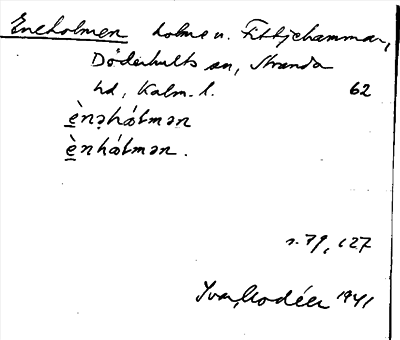 Eneholmen holme v. Fittjehammar,
Döderhults sn, Stranda
hd, Kalm. l. 62
ènəhólmən
ènhólmən.
s. 79, 127
Ivar Modéer 1941